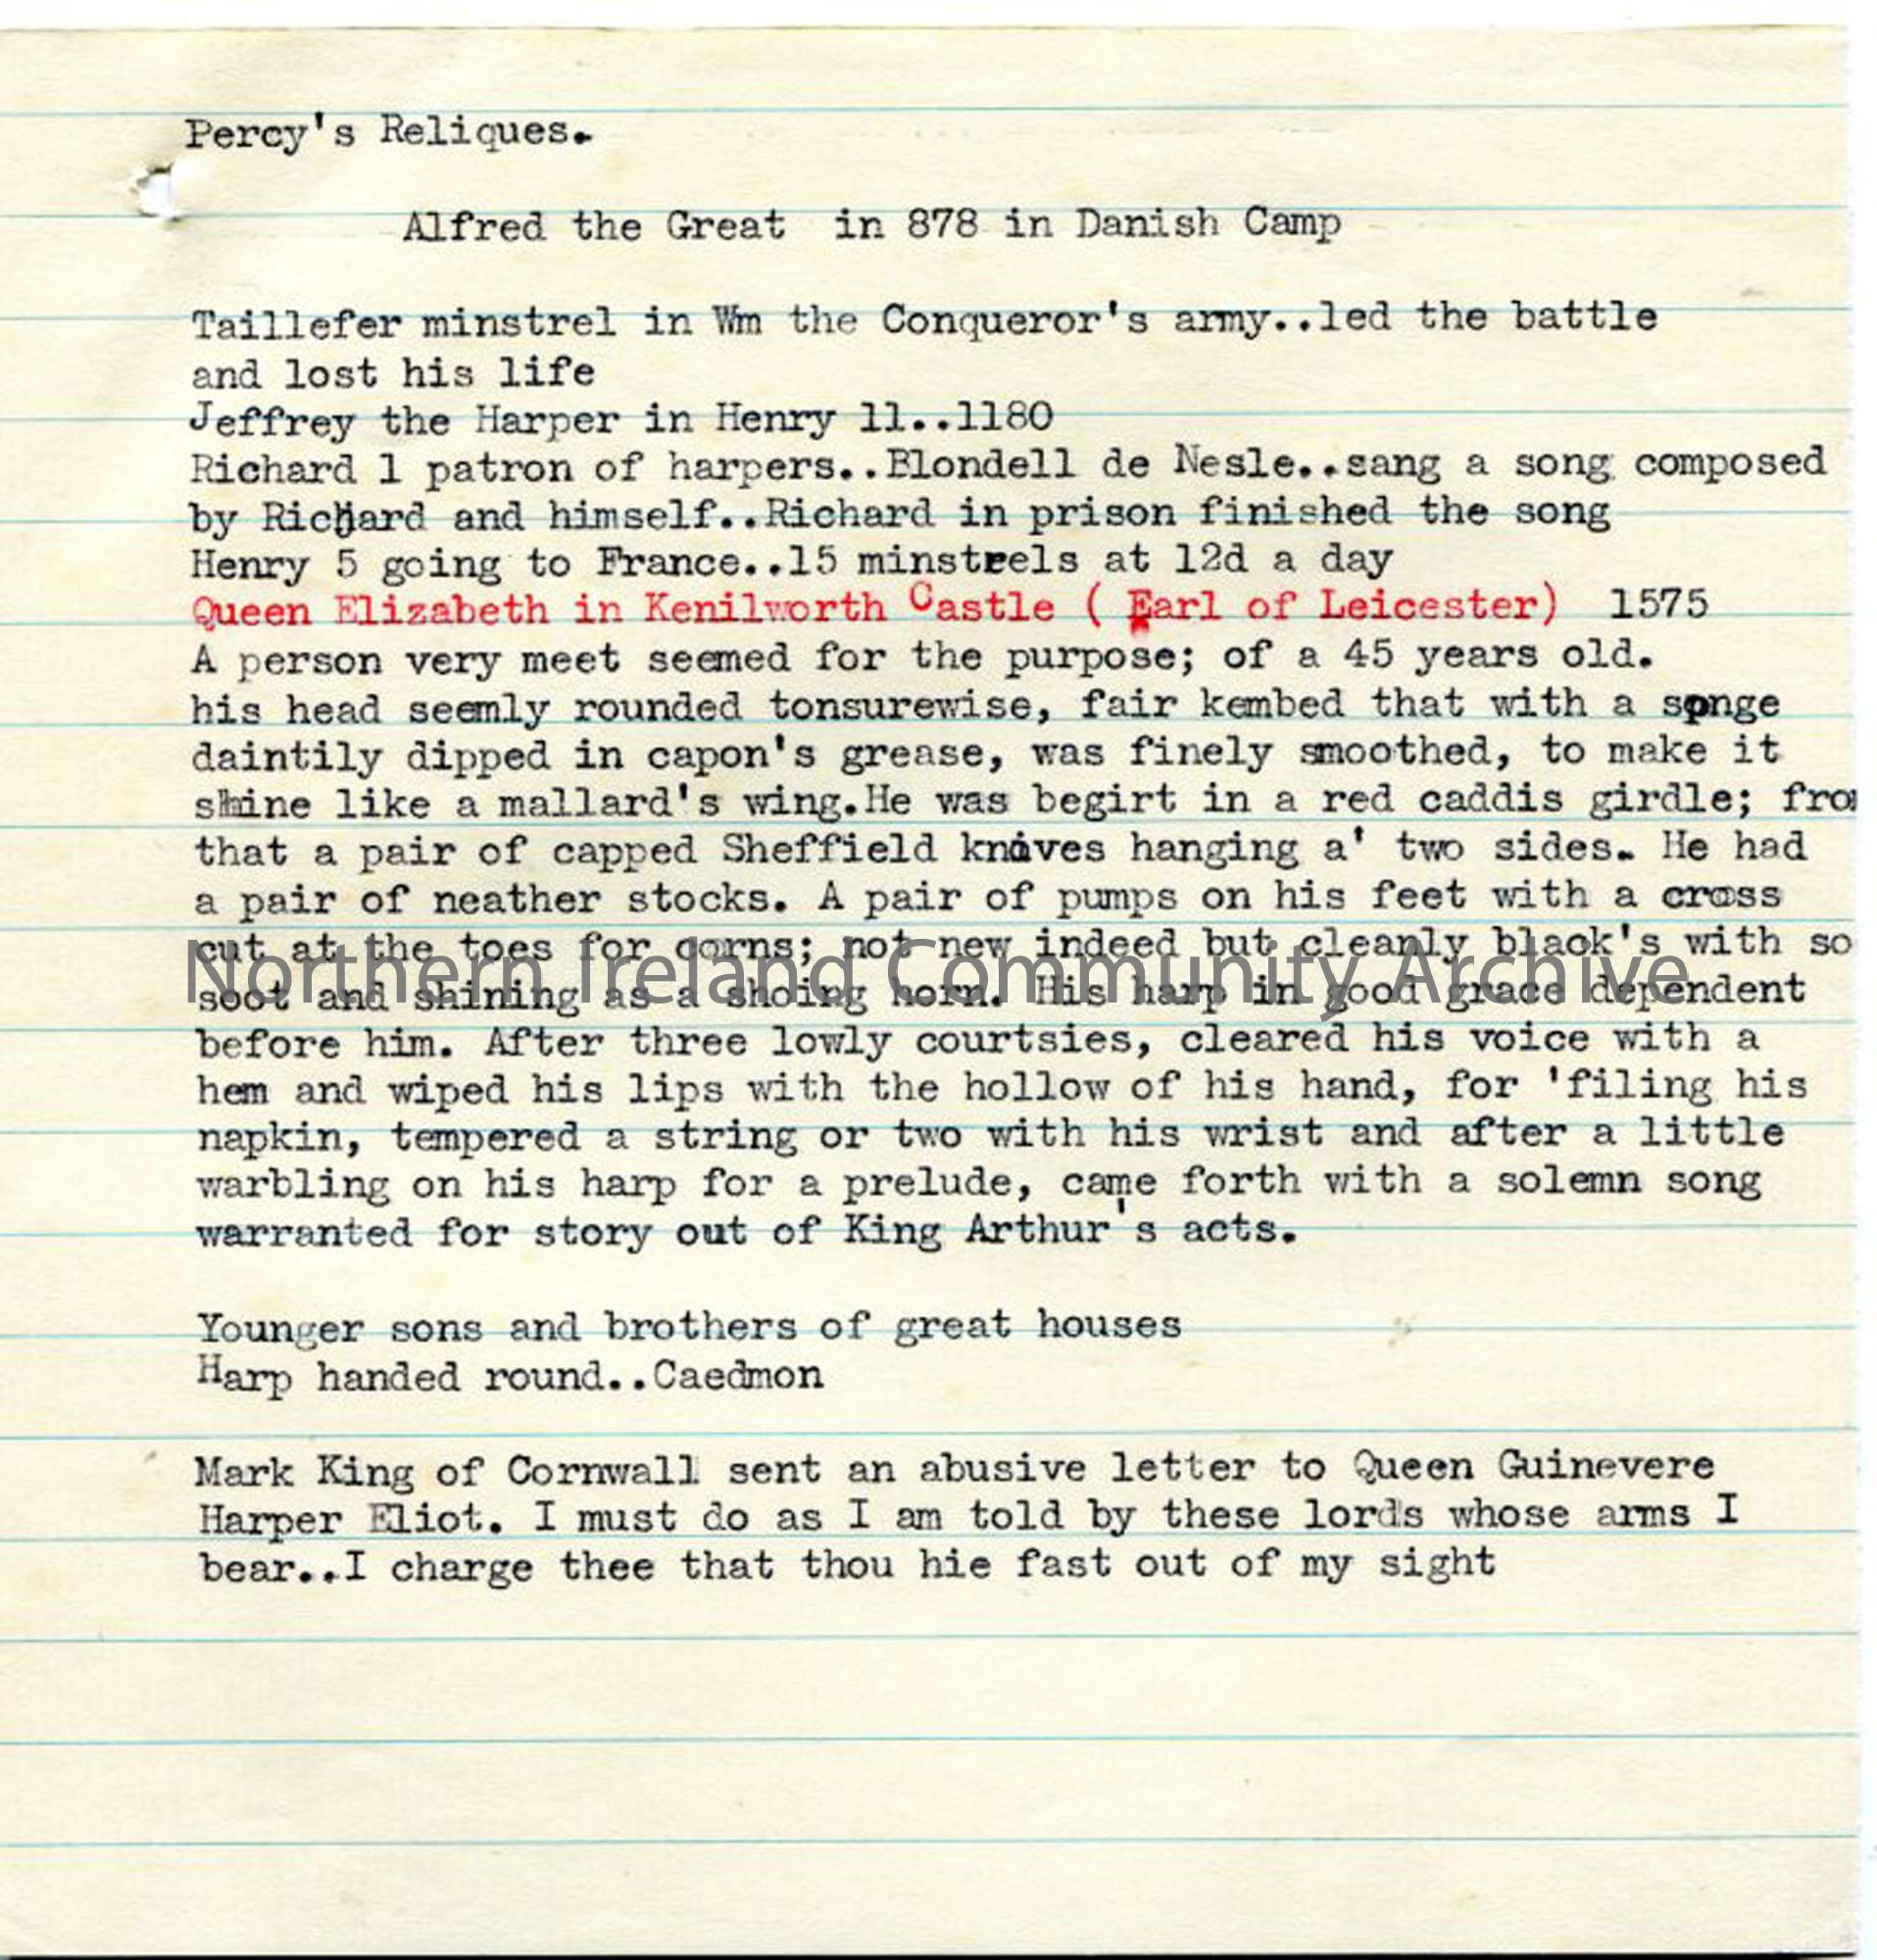 Percy's Reliques.
Alfred the Great in 878 in Danish Camp
Taillefer minstrel in Wm the Conqueror's army..led the battle
and lost his life
Jeffrey the Harper in Henry 11..1180
Richard 1 patron of harpers..Blondell de Nesle..sang a song composed
by Richard and himself..Richard in prison finished the song
Henry 5 going to France..15 minstrels at 12d a day
Queen Elizabeth in Kenilworth Castle ( Earl of Leicester) 1575
A person very meet seemed for the purpose; of a 45 years old.
his head seemly rounded tonsurewise, fair kembed that with a sponge
daintily dipped in capon's grease, was finely smoothed, to make it
shine like a mallard's wing.He was begirt in a red caddis girdle; from
that a pair of capped Sheffield knives hanging a' two sides. He had
a pair of neather stocks. A pair of pumps on his feet with a cross
cut at the toes for corns; not new indeed but cleanly black's with so
soot and shining as a shoing horn. His harp in good grace dependent
Northern Ireland Community Archive
before him. After three lowly courtsies, cleared his voice with a
hem and wiped his lips with the hollow of his hand, for 'filing his
napkin, tempered a string or two with his wrist and after a little
warbling on his harp for a prelude, came forth with a solemn song
warranted for story out of King Arthur's acts.
Younger sons and brothers of great houses
Harp handed round..Caedmon
Mark King of Cornwall sent an abusive letter to Queen Guinevere
Harper Eliot. I must do as I am told by these lords whose arms I
bear..I charge thee that thou hie fast out of my sight